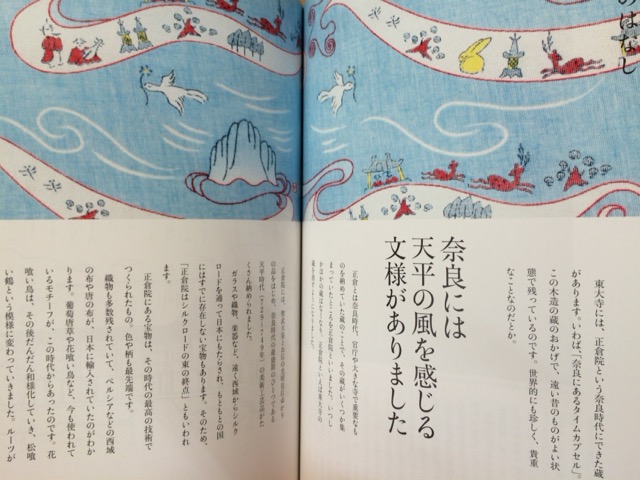 のはなし
奈良には
天平の風を感じる
文様がありました
東大寺には、正倉院という奈良時代にできた蔵
があります。いわば、「奈良にあるタイムカプセル」。
この木造の蔵のおかげで、遠い昔のものがよい状
態で残っているのです。世界的にも珍しく、貴重
なことなのだとか。
正倉とは奈良時代、官庁や大きな寺で重要なも
のを納めていた蔵のことで、その蔵がいくつか集
まっていたところを正倉院といいました。いつし
正倉院には、聖武天皇と
の品をはじめ、奈良時代の
天平時代(729〜749年)の美術工芸品がた
くさん納められました。
ガラスや織物、楽器など、遠く西域からシルク
ロードを通って日本にもたらされ、もともとの国
にはすでに存在しない宝物もあります。そのため、
「正倉院はシルクロードの東の終点」ともいわれ
ます。
正倉院にある宝物は、その時代の最高の技術で
つくられたもの。色や柄も最先端です。
織物も多数残されていて、ペルシアなどの西域
の布や唐の布が、日本に輸入されていたのがわか
ります。葡萄唐草や花喰い鳥など、今も使われて
いるモチーフが、この時代からあったのです。花
喰い鳥は、その後だんだん和様化していき、松喰
い鶴という模様に変わっていきました。ルーツが